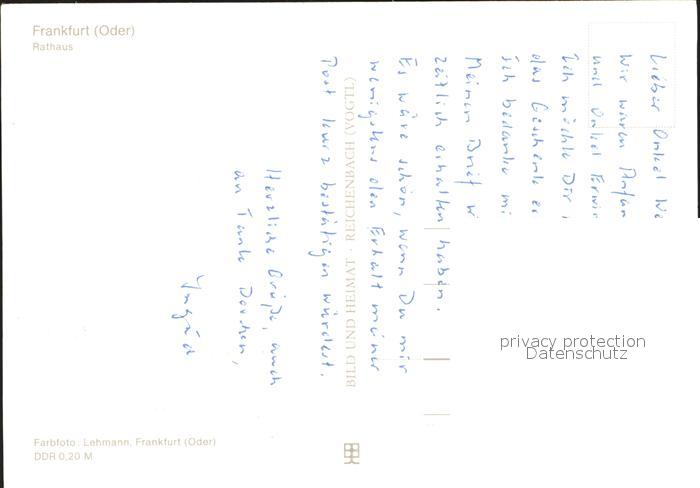 Frankfurt (Oder)
Rathaus
Lieber Onkel
Wir waren
und Onkel Erwin
Ich möchte Dir
das Geschenk
ich bedanke mi
Meinen Brief
zeitlich erhalten haben.
Es wäre schön, wenn Du mir
wenigstens den Erhalt meiner
Post kurz bestätigen würdest.
Herzliche Grüße, auch
an Tante Dorchen,
BILD UND HEIMAT · REICHENBACH (VOGTL)
privacy protection
Datenschutz
Farbfoto: Lehmann, Frankfurt (Oder)
DDR 0,20 M